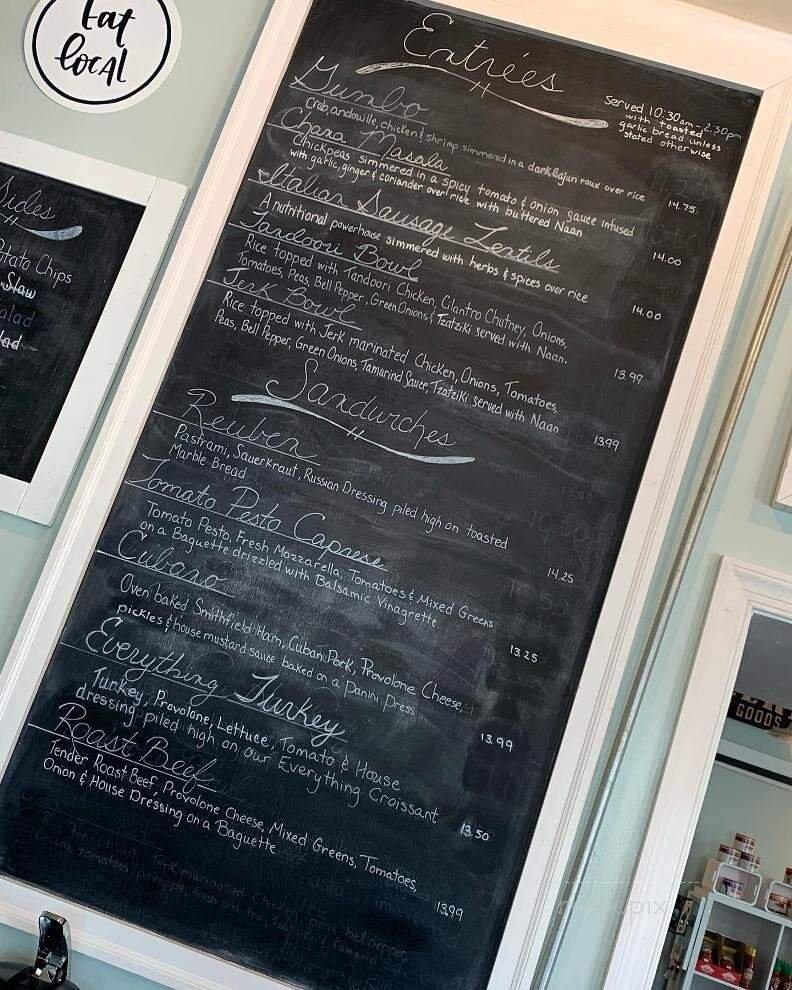 Eat
local
Sides
Potato Chips
Slaw
Salad
Entrées
Served 10:30am-2:30pm
with toasted
garlic bread unless
stated otherwise
Gumbo
Crab, andouille, chicken & shrimp simmered in a dark Cajun roux over rice 14.75
Chana Masala
Chickpeas simmered in a spicy tomato & onion sauce infused
with garlic, ginger & coriander over rice with buttered Naan 14.00
Italian Sausage Lentils
A nutritional powerhouse simmered with herbs & spices over rice 14.00
Tandoori Bowl
Rice topped with Tandoori Chicken, Cilantro Chutney, Onions,
Tomatoes, Peas, Bell Pepper, Green Onions & Tzatziki served with Naan. 13.99
Jerk Bowl
Rice topped with Jerk marinated Chicken, Onions, Tomatoes,
Peas, Bell Pepper, Green Onions, Tamarind Sauce, Tzatziki served with Naan 13.99
Sandwiches
Reuben
Pastrami, Sauerkraut, Russian Dressing piled high on toasted
Marble Bread 14.25
Tomato Pesto Caprese
Tomato Pesto, Fresh Mozzarella, Tomatoes & Mixed Greens
on a Baguette drizzled with Balsamic Vinagrette. 13.25
Cubano
Oven baked Smithfield Ham, Cuban Pork, Provolone Cheese,
pickles & house mustard sauce baked on a Panini Press 13.99
Everything Turkey
Turkey, Provolone, Lettuce, Tomato & House
dressing piled high on our Everything Croissant 13.50
Roast Beef
Tender Roast Beef, Provolone Cheese, Mixed Greens, Tomatoes,
Onion & House Dressing on a Baguette 13.99
GOODS